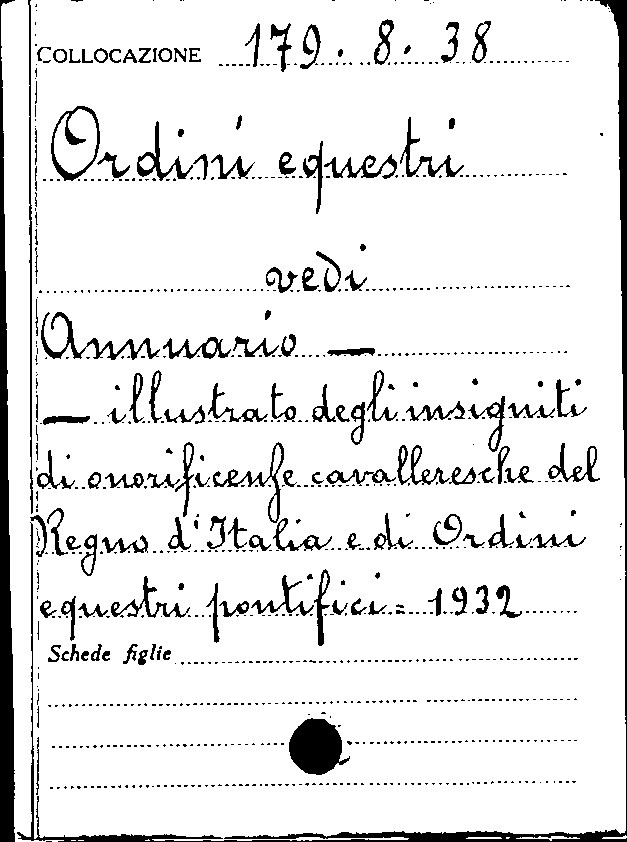 COLLOCAZIONE 179. 8. 38
Ordini equestri
vedi
Annuario —
— illustrato degli insigniti
di onorificenze cavalleresche del
Regno d'Italia e di Ordini
equestri pontifici = 1932
Schede figlie